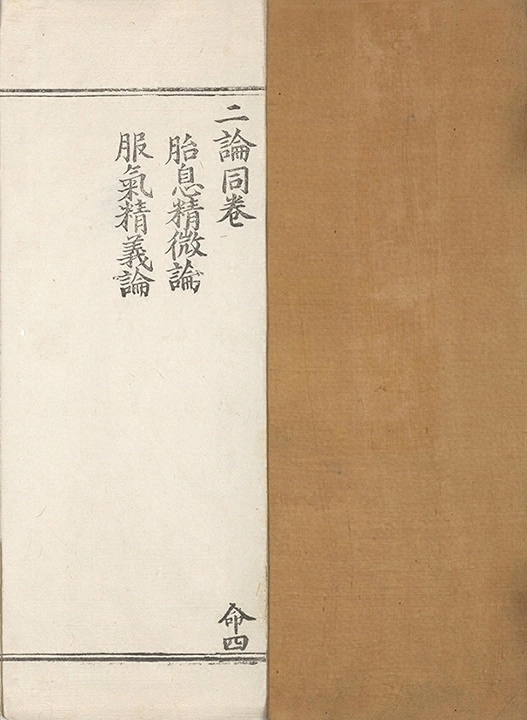 二論同卷
胎息精微論
服氣精義論
命四